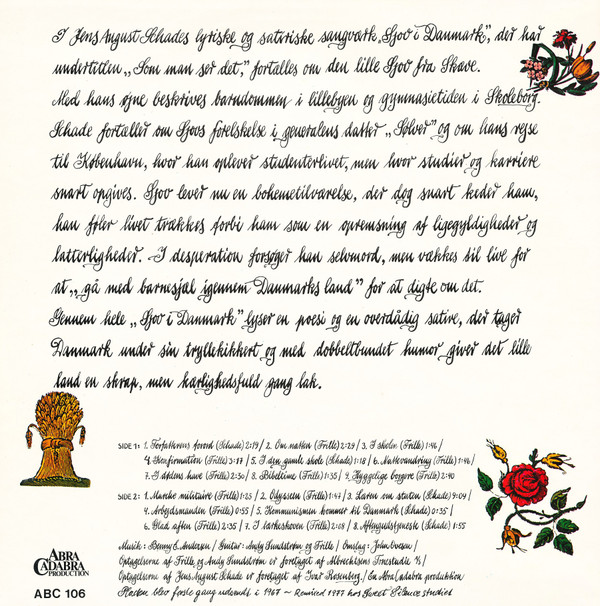 I Jens August Schades lyriske og satiriske sangværk „Sjov i Danmark”, der har
undertitlen „Som man ser det,” fortælles om den lille Sjov fra Skave.
Med hans øjne beskrives barndommen i lillebyen og gymnasietiden i Skoleborg.
Schade fortæller om Sjovs forelskelse i generalens datter „Sølver” og om hans rejse
til København, hvor han oplever studenterlivet, men hvor studier og karriere
snart opgives. Sjov lever nu en bohemetilværelse, der dog snart keder ham,
han føler livet trækkes forbi ham som en opremsning af ligegyldigheder og
latterligheder. I desperation forsøger han selvmord, men vækkes til live for
at „gå med barnesjæl igennem Danmarks land” for at digte om det.
Gennem hele „Sjov i Danmark” lyser en poesi og en overdådig satire, der tager
Danmark under sin tryllekikkert og med dobbeltbundet humor giver det lille
land en skrap, men kærlighedsfuld gang lak.
SIDE 1: 1. Forfatterens forord (Schade) 2:19 / 2. Om natten (Frille) 2:29 / 3. I skolen (Frille) 1:46 /
4. Konfirmation (Frille) 3:17 / 5. I den gamle skole (Schade) 1:18 / 6. Nattevandring (Frille) 1:46 /
7. I idylens have (Frille) 2:30 / 8. Bibelline (Frille) 1:35 / 9. Hyggelige borgere (Frille) 2:40
SIDE 2: 1. Marche militaire (Frille) 1:25 / 2. Odysseen (Frille) 1:47 / 3. Laven om staten (Schade) 9:09 /
4. Arbejdsmanden (Frille) 0:55 / 5. Kommunismen kommer til Danmark (Schade) 0:35 /
6. Glad aften (Frille) 2:35 / 7. I lærkeskoven (Frille) 2:08 / 8. Aftengudstjeneste (Schade) 1:55
Musik: Benny E. Andersen / Guitar: Andy Sundström og Frille / Omslag: John Ovesen /
Optagelserne af Frille og Andy Sundström er foretaget af Albrechtsens Tonestudie %/
Optagelserne af Jens August Schade er foretaget af Ivar Rosenberg / En Abra Cadabra produktion
Pladen blev første gang udsendt i 1967 – Remixed 1977 hos Sweet Silence studies
ABRA
CADABRA
PRODUCTION
ABC 106